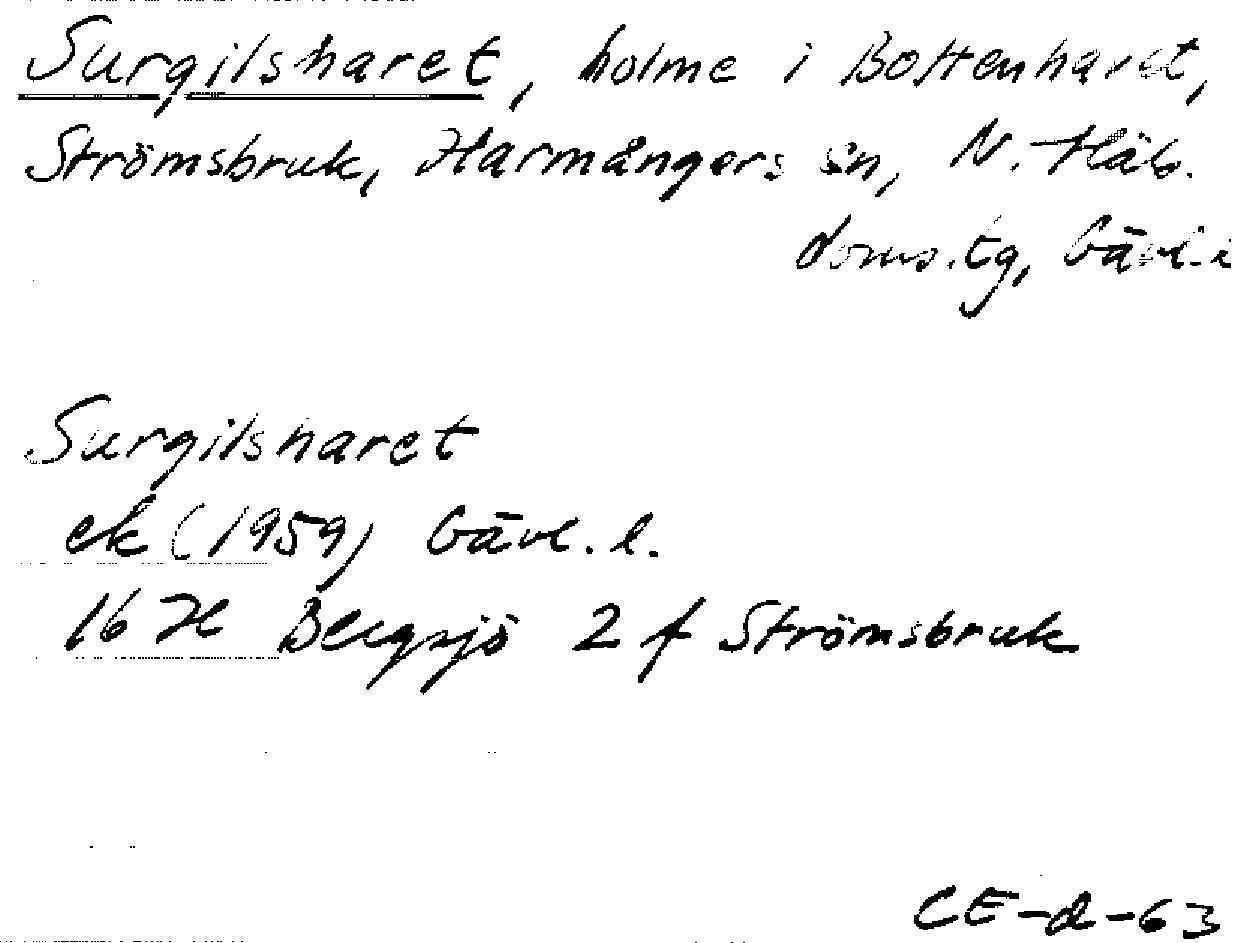 Surgilsharet, holme i Bottenharet,
Strömsbruk, Harmångers sn, N. Häls.
doms.tg, Gävl. l
Surgilsharet
ek (1959) Gävl. l.
16 H Bergsjö 2 f Strömsbruk
CE-d-63